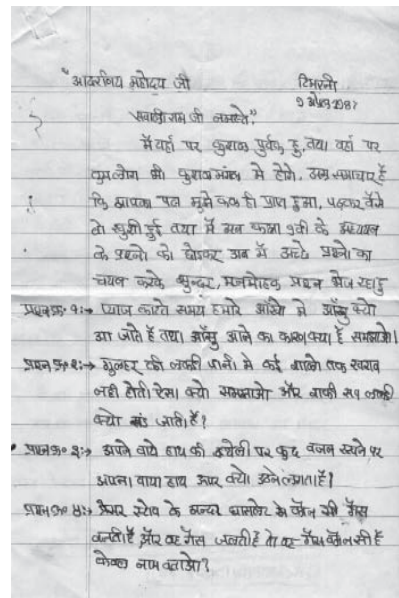 "आदरणिय महोदय जी टिमरनी
9 अप्रेल 1987
सवालीराम जी नमस्ते"
मैं यहाँ पर कुशल पुर्वक हु, तथा वहाँ पर
तुम लोग भी कुशल मंगल मे होंगे, उत्तम समाचार है
कि आपका पत्र मुझे कल ही प्राप्त हुआ, पढ़कर वैसे
तो खुशी हुई तथा मैं अब कक्षा 9वीं के अध्ययन
के प्रश्नो को छोडकर अब मैं अच्छे प्रश्नो का
चयन करके सुन्दर, मनमोहक प्रश्न भेज रहा हु
प्रश्न क्र. १:→ प्याज काटते समय हमारे आँखो मे आँसु क्यो
आ जाते है तथा आँसु आने का कारण क्या है समझाओ।
प्रश्न क्र. २:→ गुलहर की लकडी पानी मे कई सालो तक खराब
नही होती ऐसा क्यो समझाओ और बाकी सब लकडी
क्यो सड जाती है?
प्रश्न क्र. ३:→ अपने बाये हाथ की हथेली पर कुछ वजन रखने पर
अपना बाया हाथ ऊपर क्यो उठने लगता है?
प्रश्न क्र. ४:→ अगर स्टोव के अन्दर घासलेट से कौन सी गैस
बनती है और वह गैस जलती है तो वह गैस कौन सी है
केवल नाम बताओ?